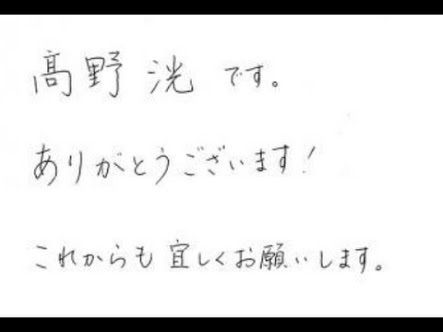 髙野 洸 です。
ありがとうございます!
これからも 宜しくお願いします。